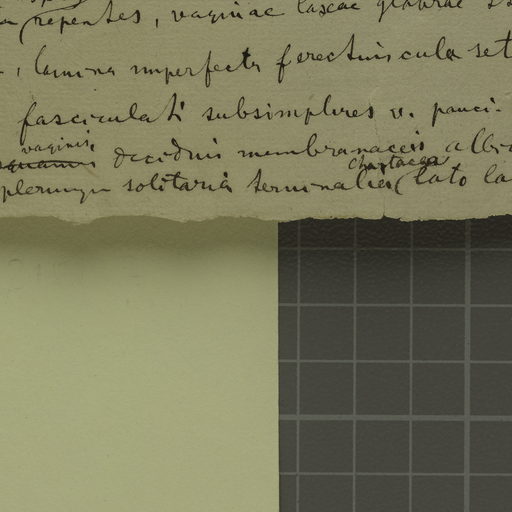 repentes, vaginae laxae glabrae
lamina imperfecta f erectiuscula set
fasciculati subsimplices v. pauci-
vaginis
deciduis membranaceis albi
chartacea
plerumque solitaria terminalia (lato la